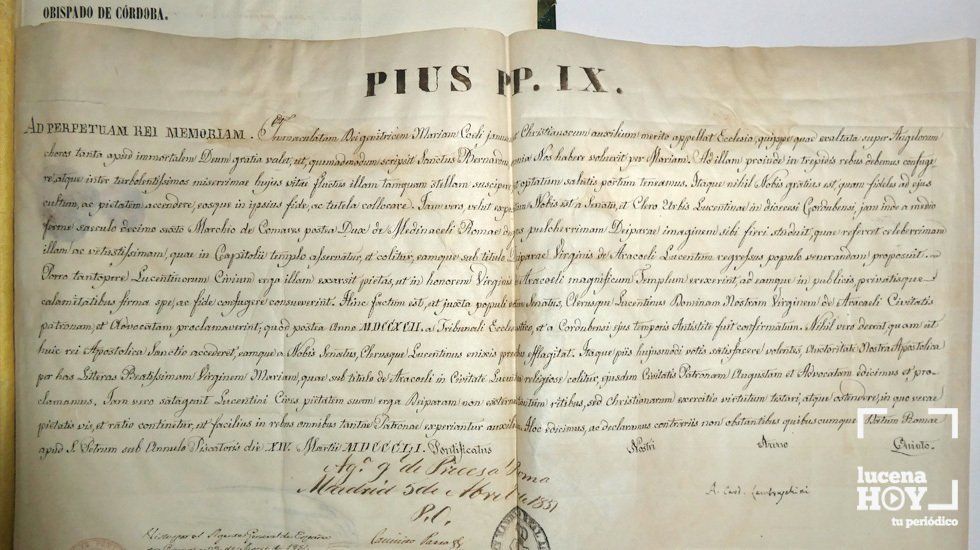 OBISPADO DE CÓRDOBA.
PIUS PP. IX.
AD PERPETUAM REI MEMORIAM. Immaculatam Dei genitricem Mariam Coeli januam Christianorum auxilium merito appellat Ecclesia, quippe quae exaltata super Angelorum
choros tanta apud immortalem Deum gratia valet, ut, quemadmodum scripsit Sanctus Bernardus omnia Nos habere voluerit per Mariam. Ad illam proinde in trepidis rebus debemus confuge
re, atque inter turbolentissimos miserrimae hujus vitae fluctus illam tamquam stellam suscipere optatum salutis portum teneamus. Itaque nihil Nobis gratius est, quam fideles ad ejus
cultum, ac pietatem accendere, eosque in ipsius fide, ac tutela collocare. Jam vero velut Nobis est a Senatu, et Clero Urbis Lucentinae in dioecesi Cordubensi, jam inde a medio
ferme saeculo decimo sexto Marchio de Comares postea Dux de Medinaceli Romae pulcherrimam Deiparae imaginem sibi fieri studuit, quae referret celeberrimam
illam ac vetustissimam, quae in Capitolii templo asservatur, et colitur, eamque sub titulo Deiparae Virginis de Aracoeli Lucentum regressus populo venerandam proposuit.
Porro tantopere Lucentinorum Civium erga illam exarsit pietas, ut in honorem Virginis de Aracoeli magnificum Templum erexerint, ac eamque in publicis privatisque
calamitatibus firma spe, ac fide confugere consueverint. Hinc factum est, ut juxta populi Senatus, Clerusque Lucentinus Dominam Nostram Virginem de Aracoeli Civitatis
patronam, et Advocatam proclamaverint; quod postea Anno MDCCXCII. a Tribunali Ecclesiastico, et a Cordubensi ejus temporis Antistite fuit confirmatum. Nihil vero deerat, quam ut
huic rei Apostolica Sanctio accederet, eamque a Nobis Senatus, Clerusque Lucentinus enixis precibus efflagitat. Itaque piis hujusmodi votis satisfacere volentes, Auctoritate Nostra Apostolica
per has Litteras Beatissimam Virginem Mariam, quae sub titulo de Aracoeli in Civitate Lucentina religiose colitur, ejusdem Civitatis Patronam Augustam et Advocatam edicimus et pro-
clamamus. Jam vero satagant Lucentini Cives pietatem suam erga Deiparam non externis tantum ritibus, sed Christianarum exercitio virtutum testari, atque ostendere, in quo verae
pietatis vis, et ratio continetur, ut facilius in rebus omnibus tantae Patronae experiantur auxilium. Hoc edicimus, ac declaramus contrariis non obstantibus quibuscumque. Datum Romae
apud S. Petrum sub Annulo Piscatoris die XIV. Martii MDCCCLI. Pontificatus Nostri Anno Quinto.
Agª. gl. de Preces a Roma
Madrid 5 de Abril de 1851
P.C.
A. Card. Lambruschini
lucena
HOY
tu periódico